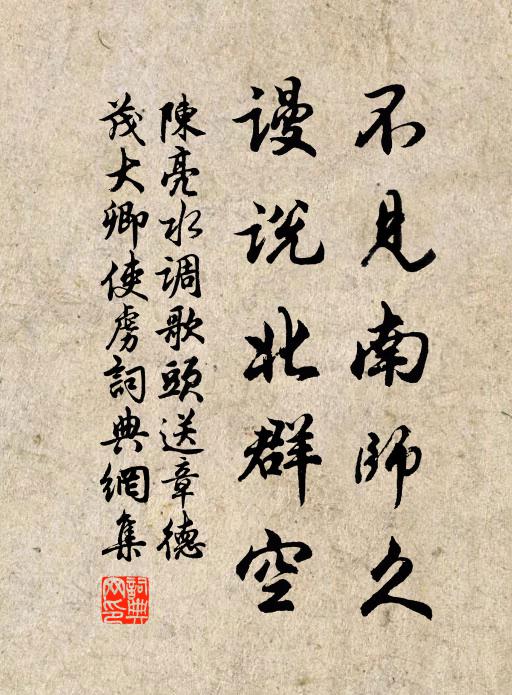 不見南師久
謾説北群空
陳亮水調歌頭送章德
茂大卿使虜詞典網集
詞典網印